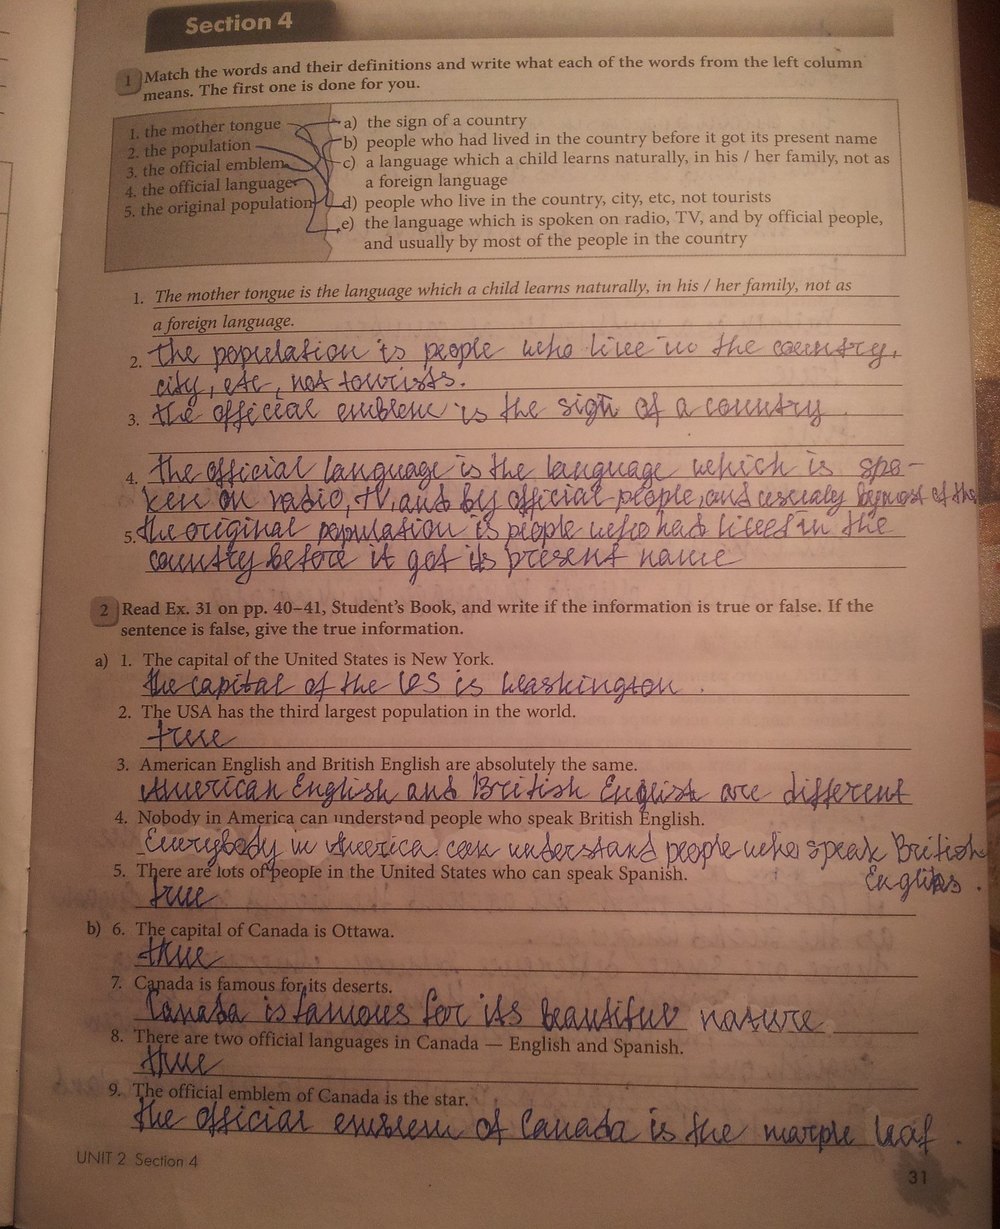 Section 4
1 Match the words and their definitions and write what each of the words from the left column
means. The first one is done for you.
1. the mother tongue
2. the population
3. the official emblem
4. the official language
5. the original population
a) the sign of a country
b) people who had lived in the country before it got its present name
c) a language which a child learns naturally, in his / her family, not as
a foreign language
d) people who live in the country, city, etc, not tourists
e) the language which is spoken on radio, TV, and by official people,
and usually by most of the people in the country
1. The mother tongue is the language which a child learns naturally, in his / her family, not as
a foreign language.
2. the population is people who live in the country,
city, etc, not tourists.
3. the official emblem is the sign of a country.
4. the official language is the language which is spo-
ken on radio, TV, and by official people, and usualy by most of the
5. the original population is people who had lived in the
country before it got its present name
2 Read Ex. 31 on pp. 40–41, Student's Book, and write if the information is true or false. If the
sentence is false, give the true information.
a) 1. The capital of the United States is New York.
the capital of the US is Washington.
2. The USA has the third largest population in the world.
true
3. American English and British English are absolutely the same.
American English and British English are different
4. Nobody in America can understand people who speak British English.
Everybody in America can understand people who speak British
5. There are lots of people in the United States who can speak Spanish.
English.
true
b) 6. The capital of Canada is Ottawa.
true
7. Canada is famous for its deserts.
Canada is famous for its beautiful nature
8. There are two official languages in Canada — English and Spanish.
true
9. The official emblem of Canada is the star.
the official emblem of Canada is the marple leaf.
UNIT 2 Section 4
31